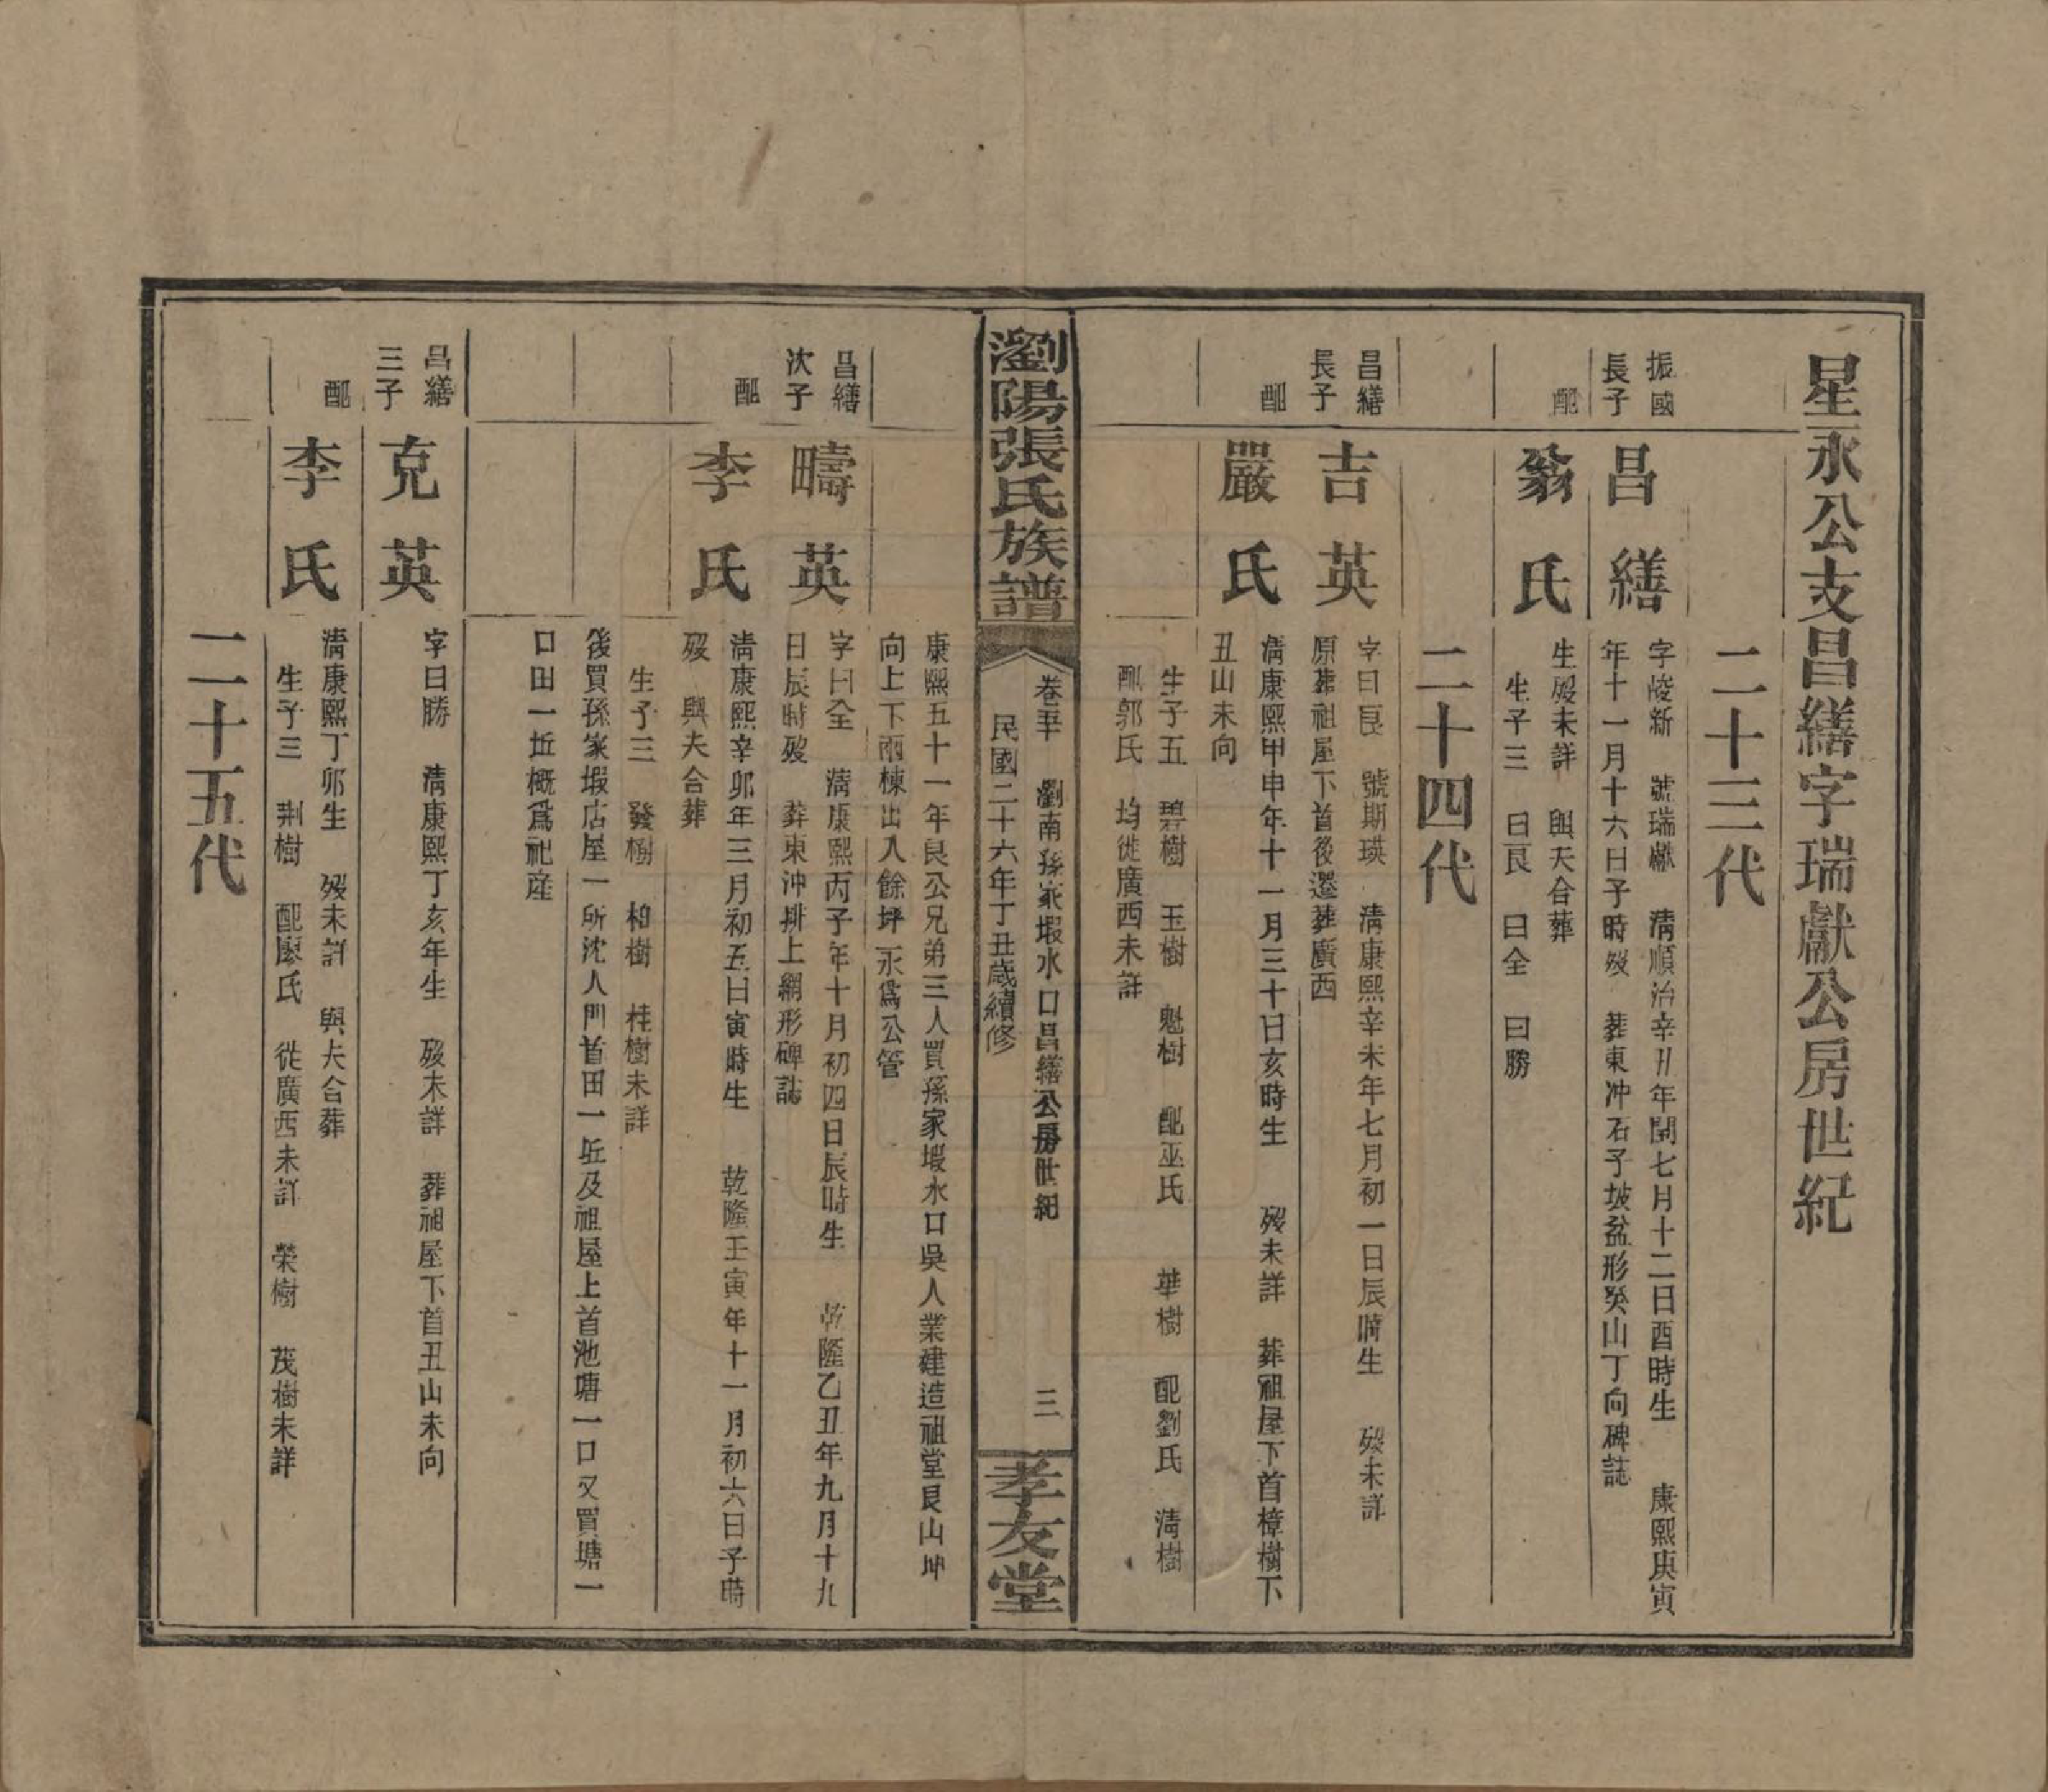 星永公支昌繕字瑞獻公房世紀
二十三代
振國
長子
昌繕
字峻新 號瑞獻 清順治辛丑年閏七月十二日酉時生 康熙庚寅
年十一月十六日子時歿 葬東冲石子坡盆形癸山丁向碑誌
配
翁氏
生歿未詳 與夫合葬
生子三 曰艮 曰全 曰勝
二十四代
昌繕
長子
吉英
字曰艮 號期瑛 清康熙辛未年七月初一日辰時生 歿未詳
原葬祖屋下首後遷葬廣西
配
嚴氏
清康熙甲申年十一月三十日亥時生 歿未詳 葬祖屋下首樟樹下
丑山未向
生子五 碧樹 玉樹 魁樹 配巫氏 華樹 配劉氏 清樹
配郭氏 均徙廣西未詳
瀏陽張氏族譜
卷五十 瀏南孫家塅水口昌繕公房世紀 三
民國二十六年丁丑歲續修
孝友堂
康熙五十一年艮公兄弟三人買孫家塅水口吳人業建造祖堂艮山坤
向上下兩棟出入餘坪永為公管
昌繕
次子
疇英
字曰全 清康熙丙子年十月初四日辰時生 乾隆乙丑年九月十九
日辰時歿 葬東沖排上網形碑誌
配
李氏
清康熙辛卯年三月初五日寅時生 乾隆壬寅年十一月初六日子時
歿 與夫合葬
生子三 發樹 柏樹 桂樹未詳
後買孫家塅店屋一所沈人門首田一坵及祖屋上首池塘一口又買塘一
口田一坵概爲祀産
昌繕
三子
克英
字曰勝 清康熙丁亥年生 歿未詳 葬祖屋下首丑山未向
配
李氏
清康熙丁卯生 歿未詳 與夫合葬
生子三 荆樹 配廖氏 徙廣西未詳 榮樹 茂樹未詳
二十五代